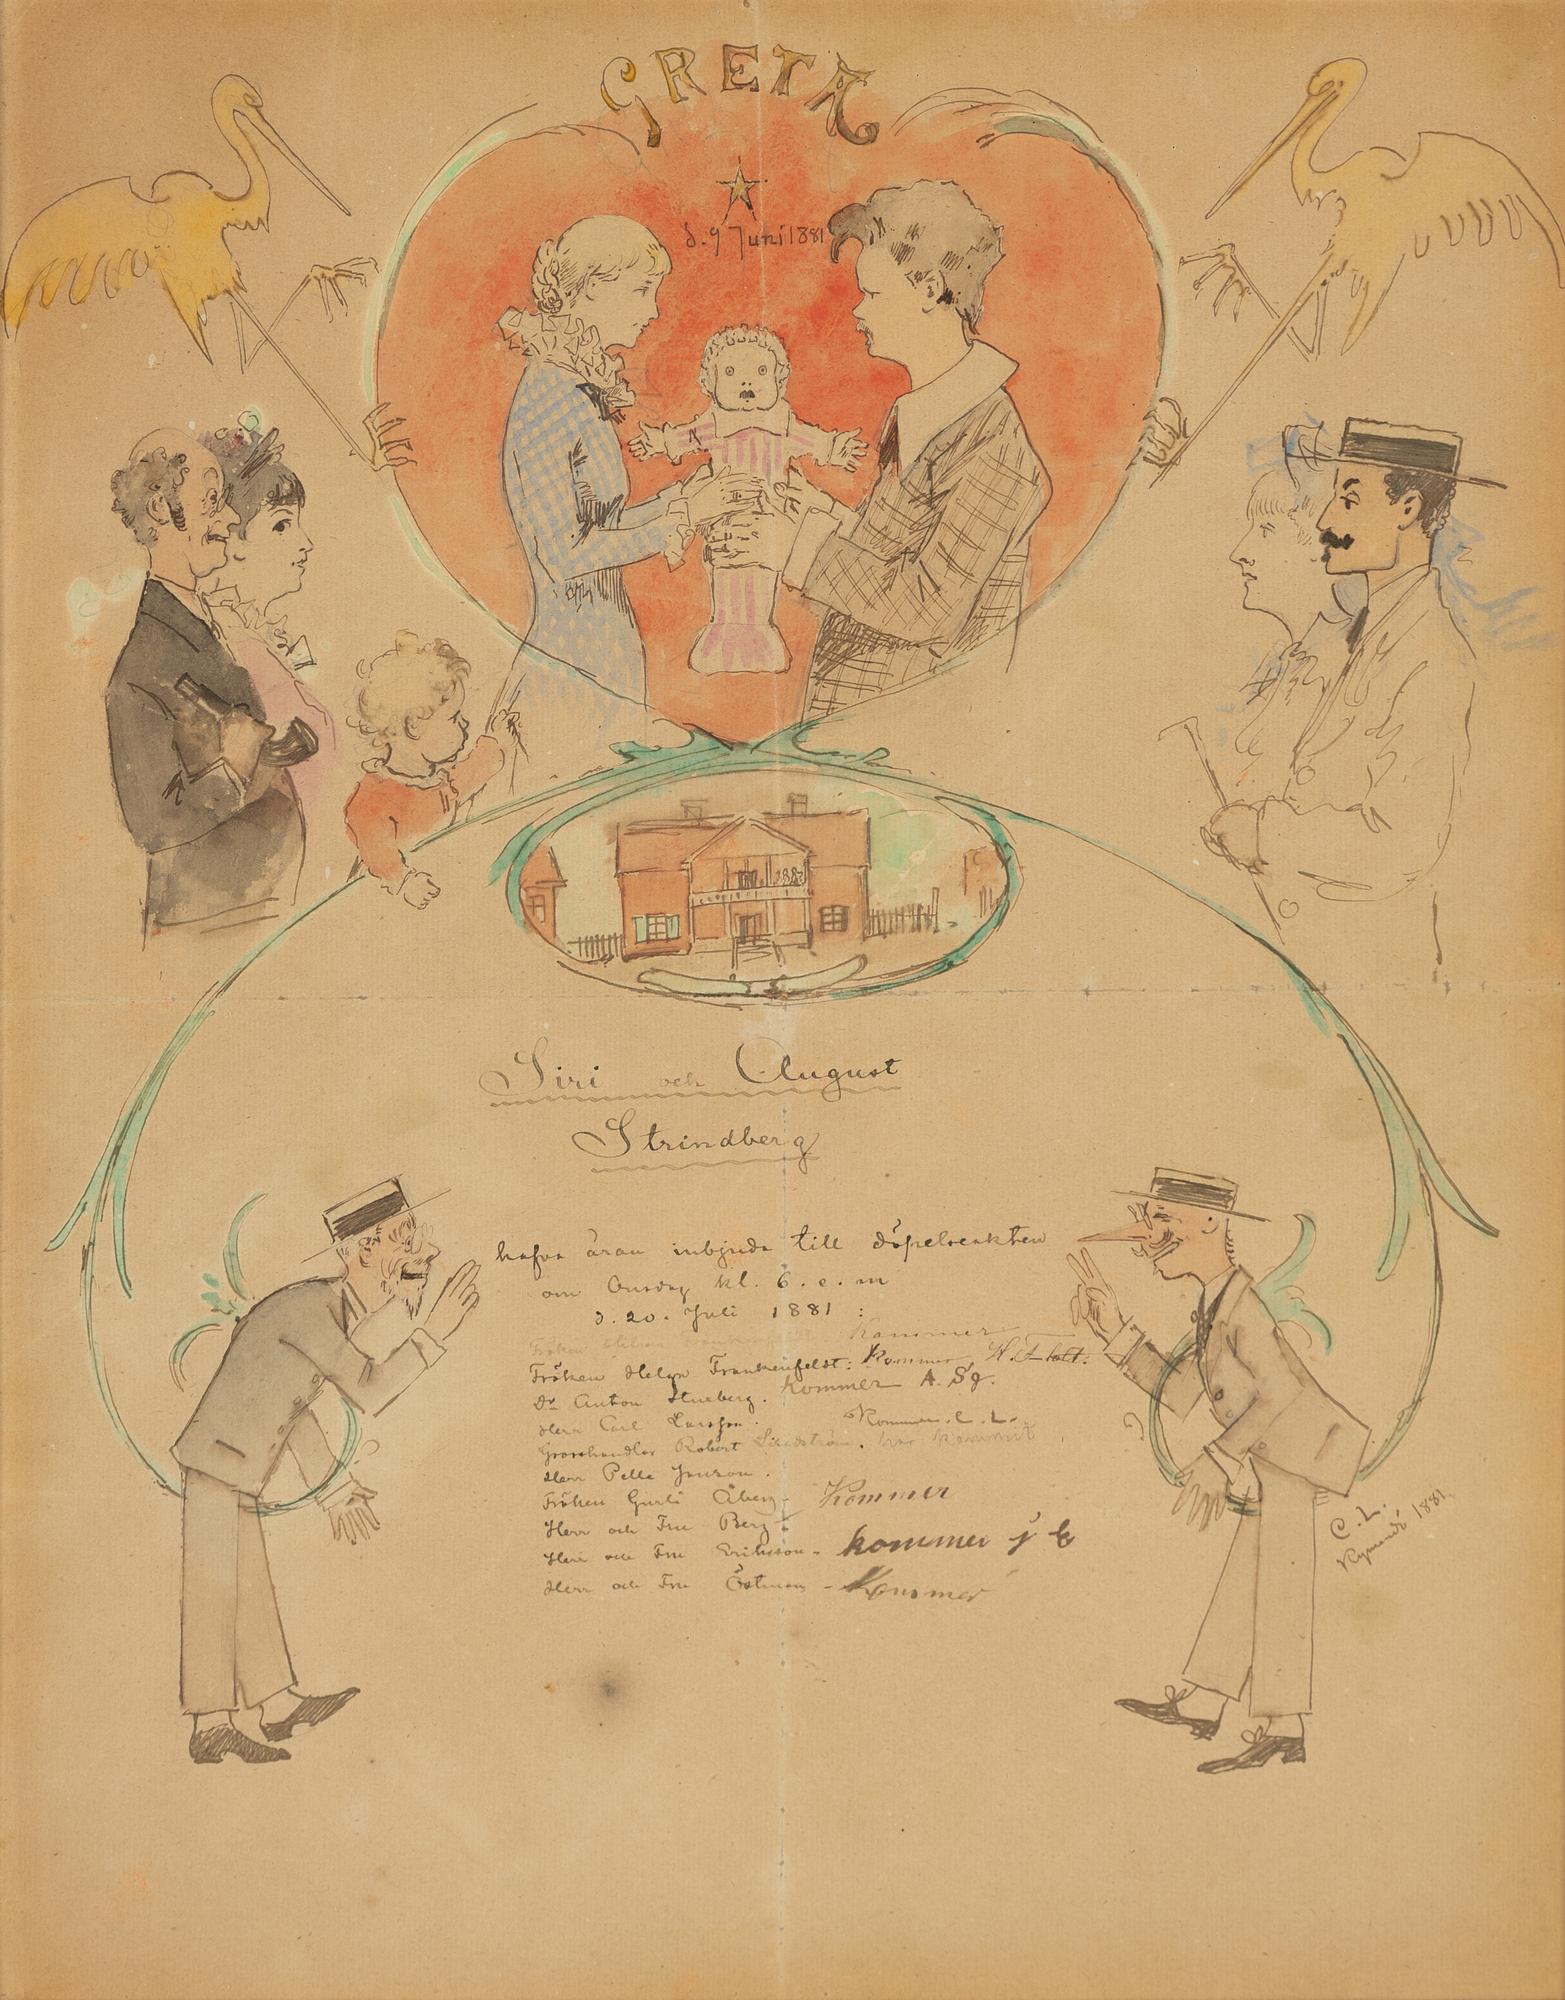 GRETA
d. 9 Juni 1881
Siri och August
Strindberg
hafva äran inbjuda till döpelseakten
om Onsdag kl. 6. e. m
d. 20. Juli 1881:
Fröken Helga Frankenfeldt: Kommer
Dr Anton Stuxberg. Kommer A. Sg.
Herr Carl Larsson. Kommer. C. L.
Grosshandlar Robert har kommit
Herr Pelle Janzon.
Fröken Gurli Åberg - Kommer
Herr och Fru Berg -
Herr och Fru Eriksson - kommer
Herr och Fru Östman - Kommer
C. L.
Kymendö 1881.